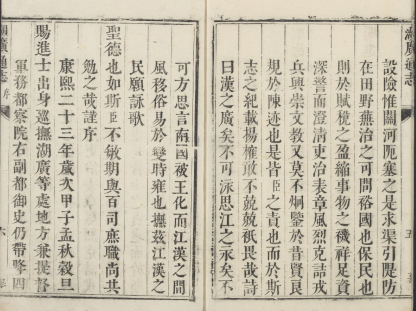 湖廣通志
五
設險惟關河阨塞之是求渠引隄防
在田野蕪治之可問裕國也保民也
則於賦稅之盈縮事物之穢祥足資
深警而澄清吏治表章風烈克詰戎
兵興崇文教又莫不炯鑒於昔賢良
規於陳迹也是皆臣之責也而於斯
志之紀載揚榷敢不兢兢祇畏哉詩
曰漢之廣矣不可泳思江之永矣不
可方思言南國被王化而江漢之間
風移俗易於變時雍也撫茲江漢之
民願詠歌
聖德也如斯臣不敏期與百司庶職尚共
勉之哉謹序
康熙二十三年歲次甲子孟秋穀旦
賜進士出身巡撫湖廣等處地方兼提督
軍務都察院右副都御史仍帶降四
湖廣通志
序
六